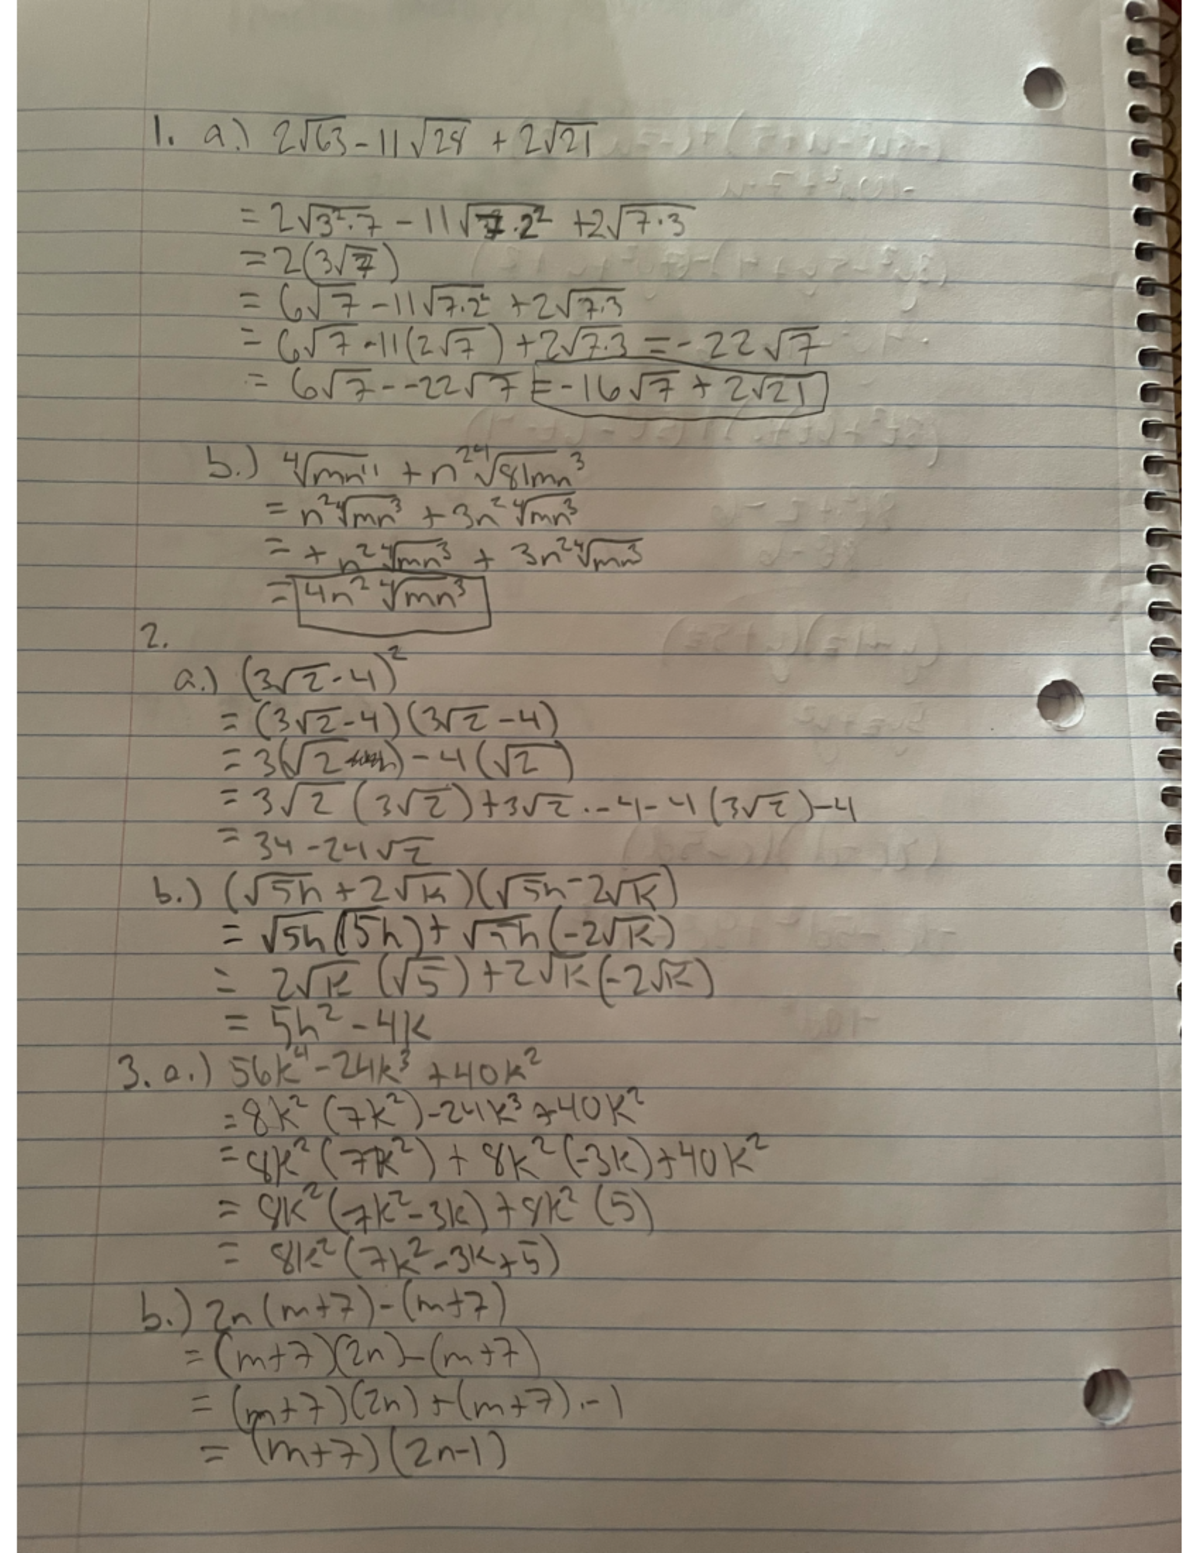 1. a.) 2√63 - 11√28 + 2√21
= 2√3²·7 - 11√7·2² + 2√7·3
= 2(3√7)
= 6√7 - 11√7·2² + 2√7·3
= 6√7 - 11(2√7) + 2√7·3 = -22√7
= 6√7 - -22√7 = -16√7 + 2√21
b.) ⁴√mn¹¹ + n² ⁴√81mn³
= n² ⁴√mn³ + 3n² ⁴√mn³
= + n² ⁴√mn³ + 3n² ⁴√mn³
= 4n² ⁴√mn³
2.
a.) (3√2 - 4)²
= (3√2 - 4)(3√2 - 4)
= 3(√2) - 4(√2)
= 3√2 (3√2) + 3√2 · -4 - 4(3√2) - 4
= 34 - 24√2
b.) (√5h + 2√k)(√5h - 2√k)
= √5h(√5h) + √5h(-2√k)
= 2√k (√5) + 2√k(-2√k)
= 5h² - 4k
3. a.) 56k⁴ - 24k³ + 40k²
= 8k² (7k²) - 24k³ + 40k²
= 8k² (7k²) + 8k² (-3k) + 40k²
= 8k² (7k² - 3k) + 8k² (5)
= 8k² (7k² - 3k + 5)
b.) 2n (m+7) - (m+7)
= (m+7)(2n) - (m+7)
= (m+7)(2n) + (m+7) · -1
= (m+7)(2n-1)